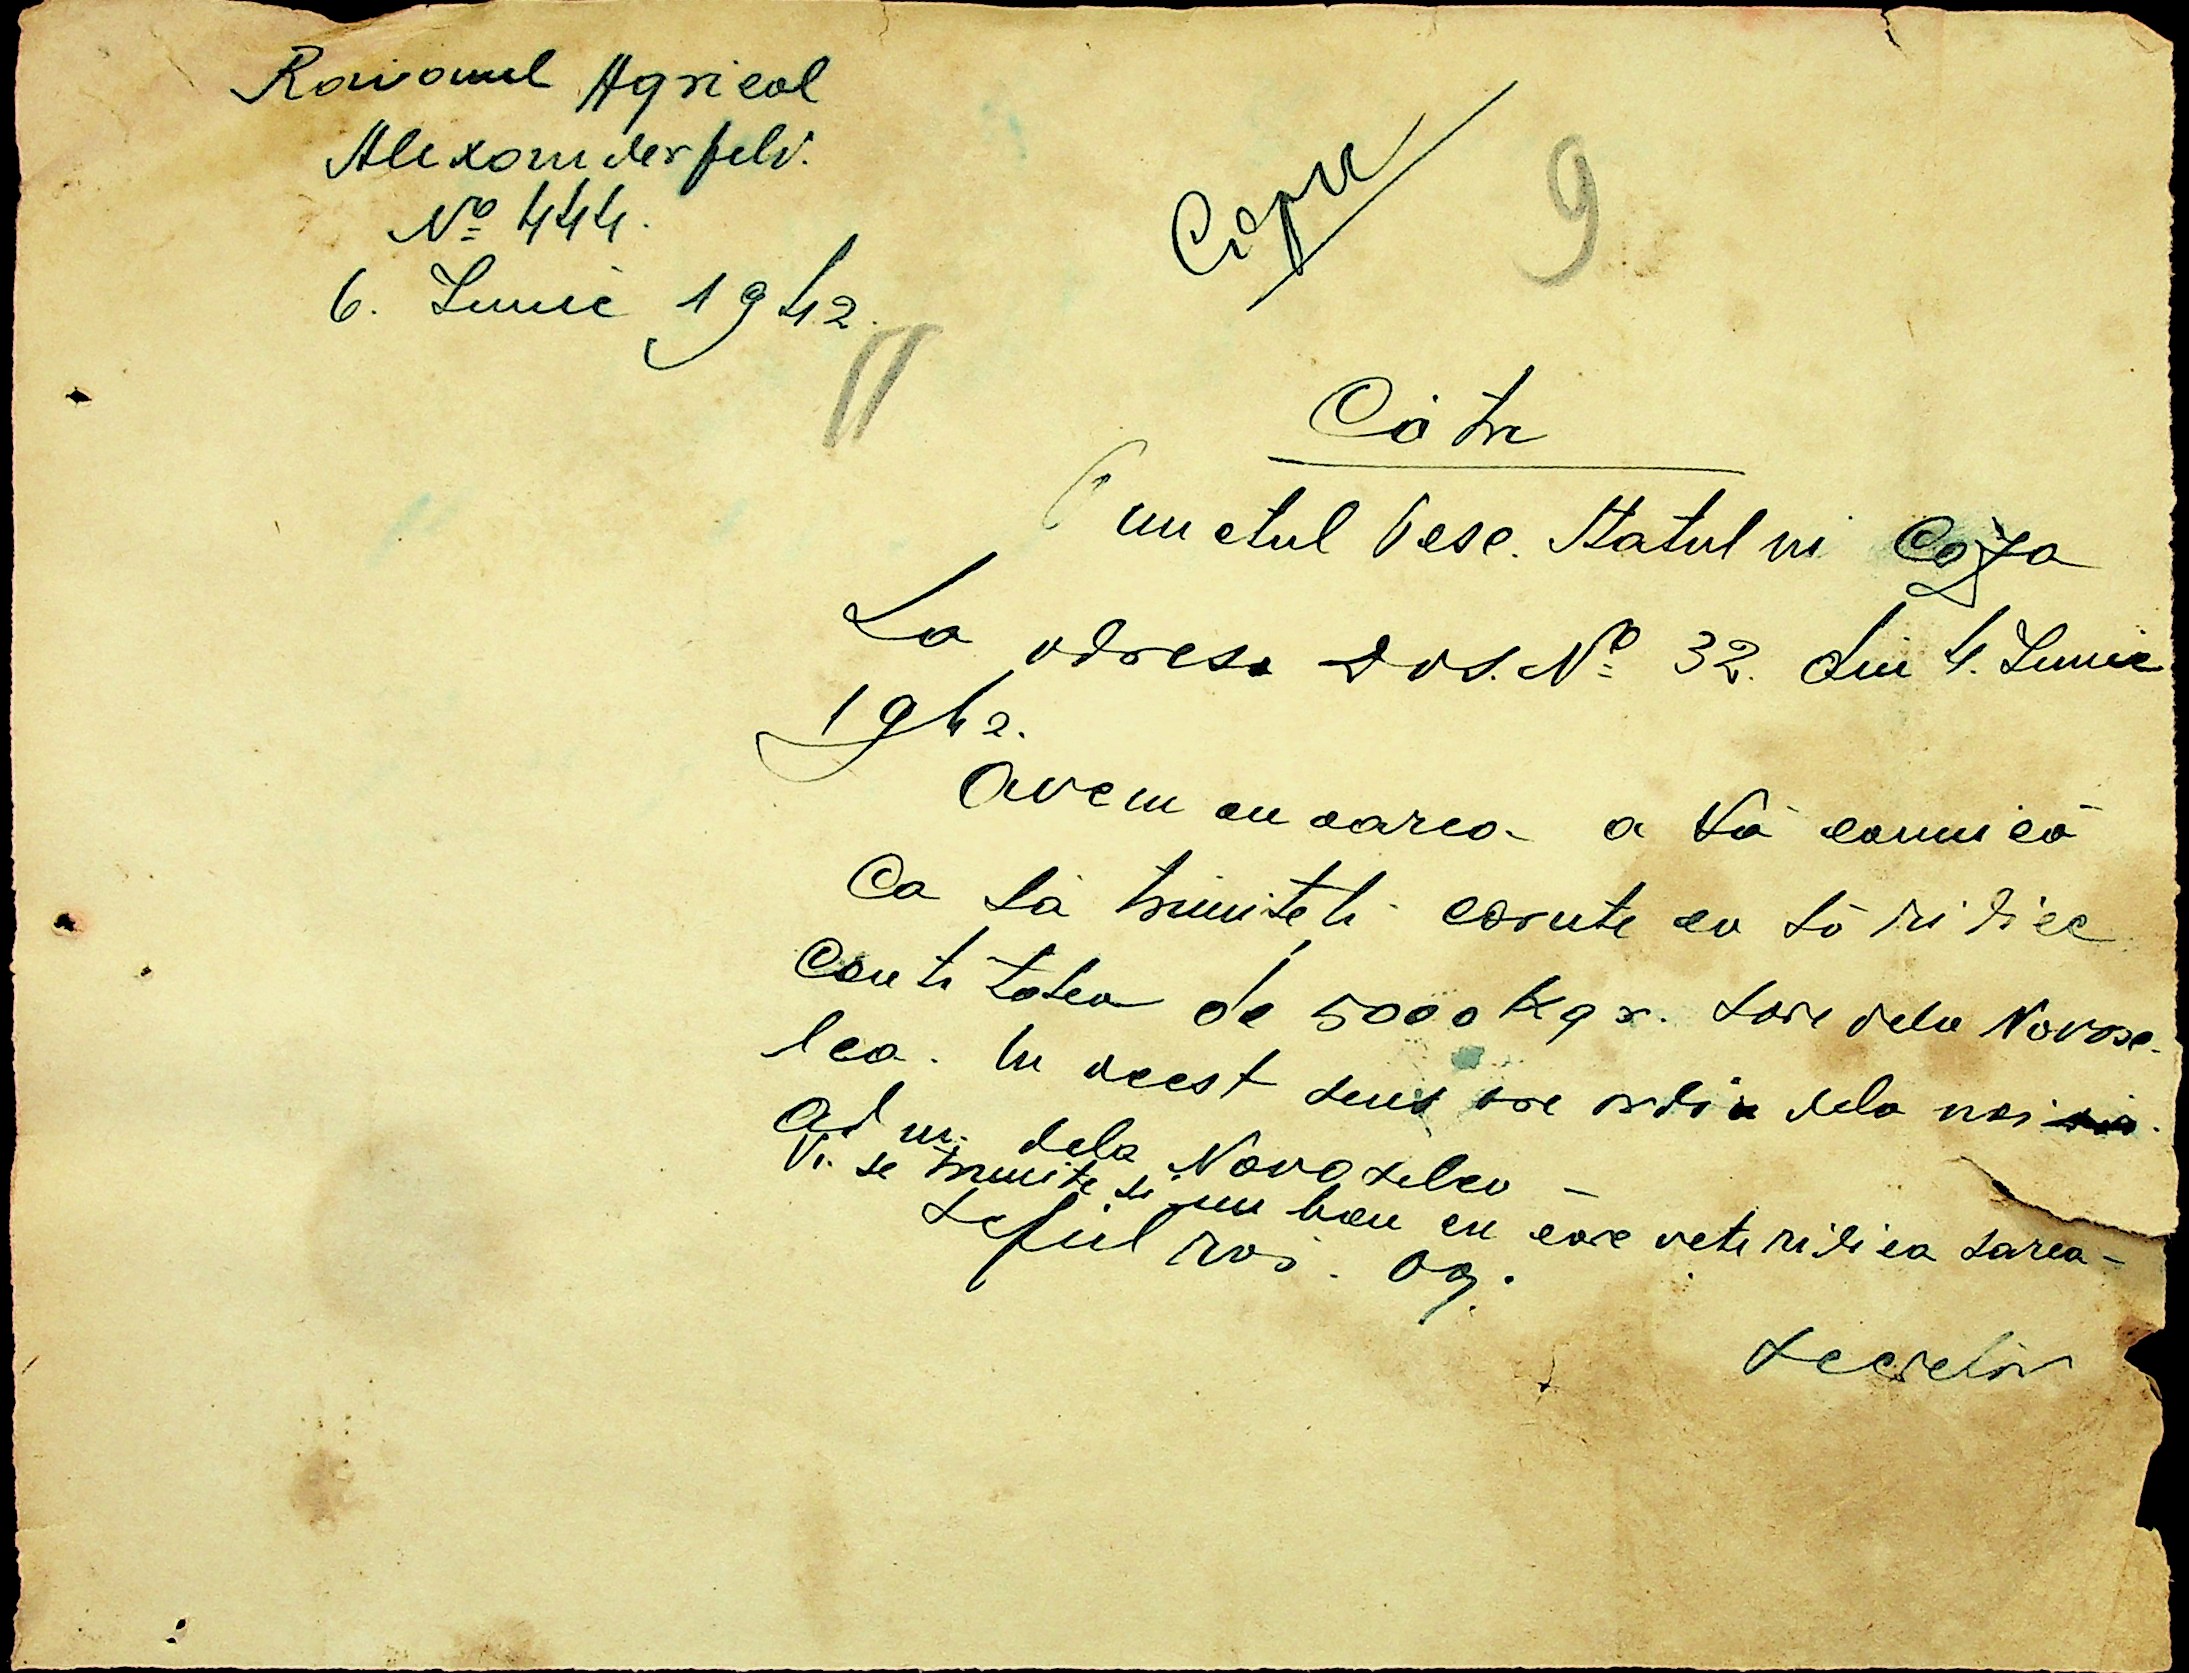 Raionul Agricol
Alexanderfeld.
Nº 444.
6. Iunie 1942.
Copie
9
Cátre
Punctul Pesc. Statului Coza
La adresa Dvs. Nº 32. din 4. Iunie
1942.
Avem onoarea a Vă comunică
Ca să trimiteti carute ca să ridice
Cantitatea de 5000 Kgr. sare dela Novose-
lca. In acest sens are ordin dela noi
Adm. dela Novoselca –
Vi. se trimite si un bon cu care veti ridica sarea –
Seful rai. Ag.
Secretar